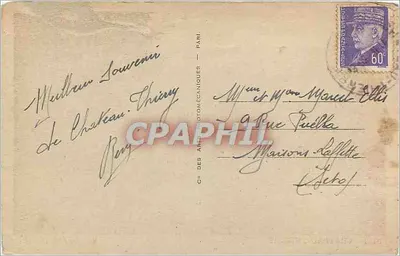 Meilleur Souvenir
de Chateau-Thierry
Cie DES ARTS PHOTOMECANIQUES — PARI
CPARHIF
Mr et Mme Marcel Ellis
9 Rue Puebla
Maisons Laffitte
(S et O)
60c